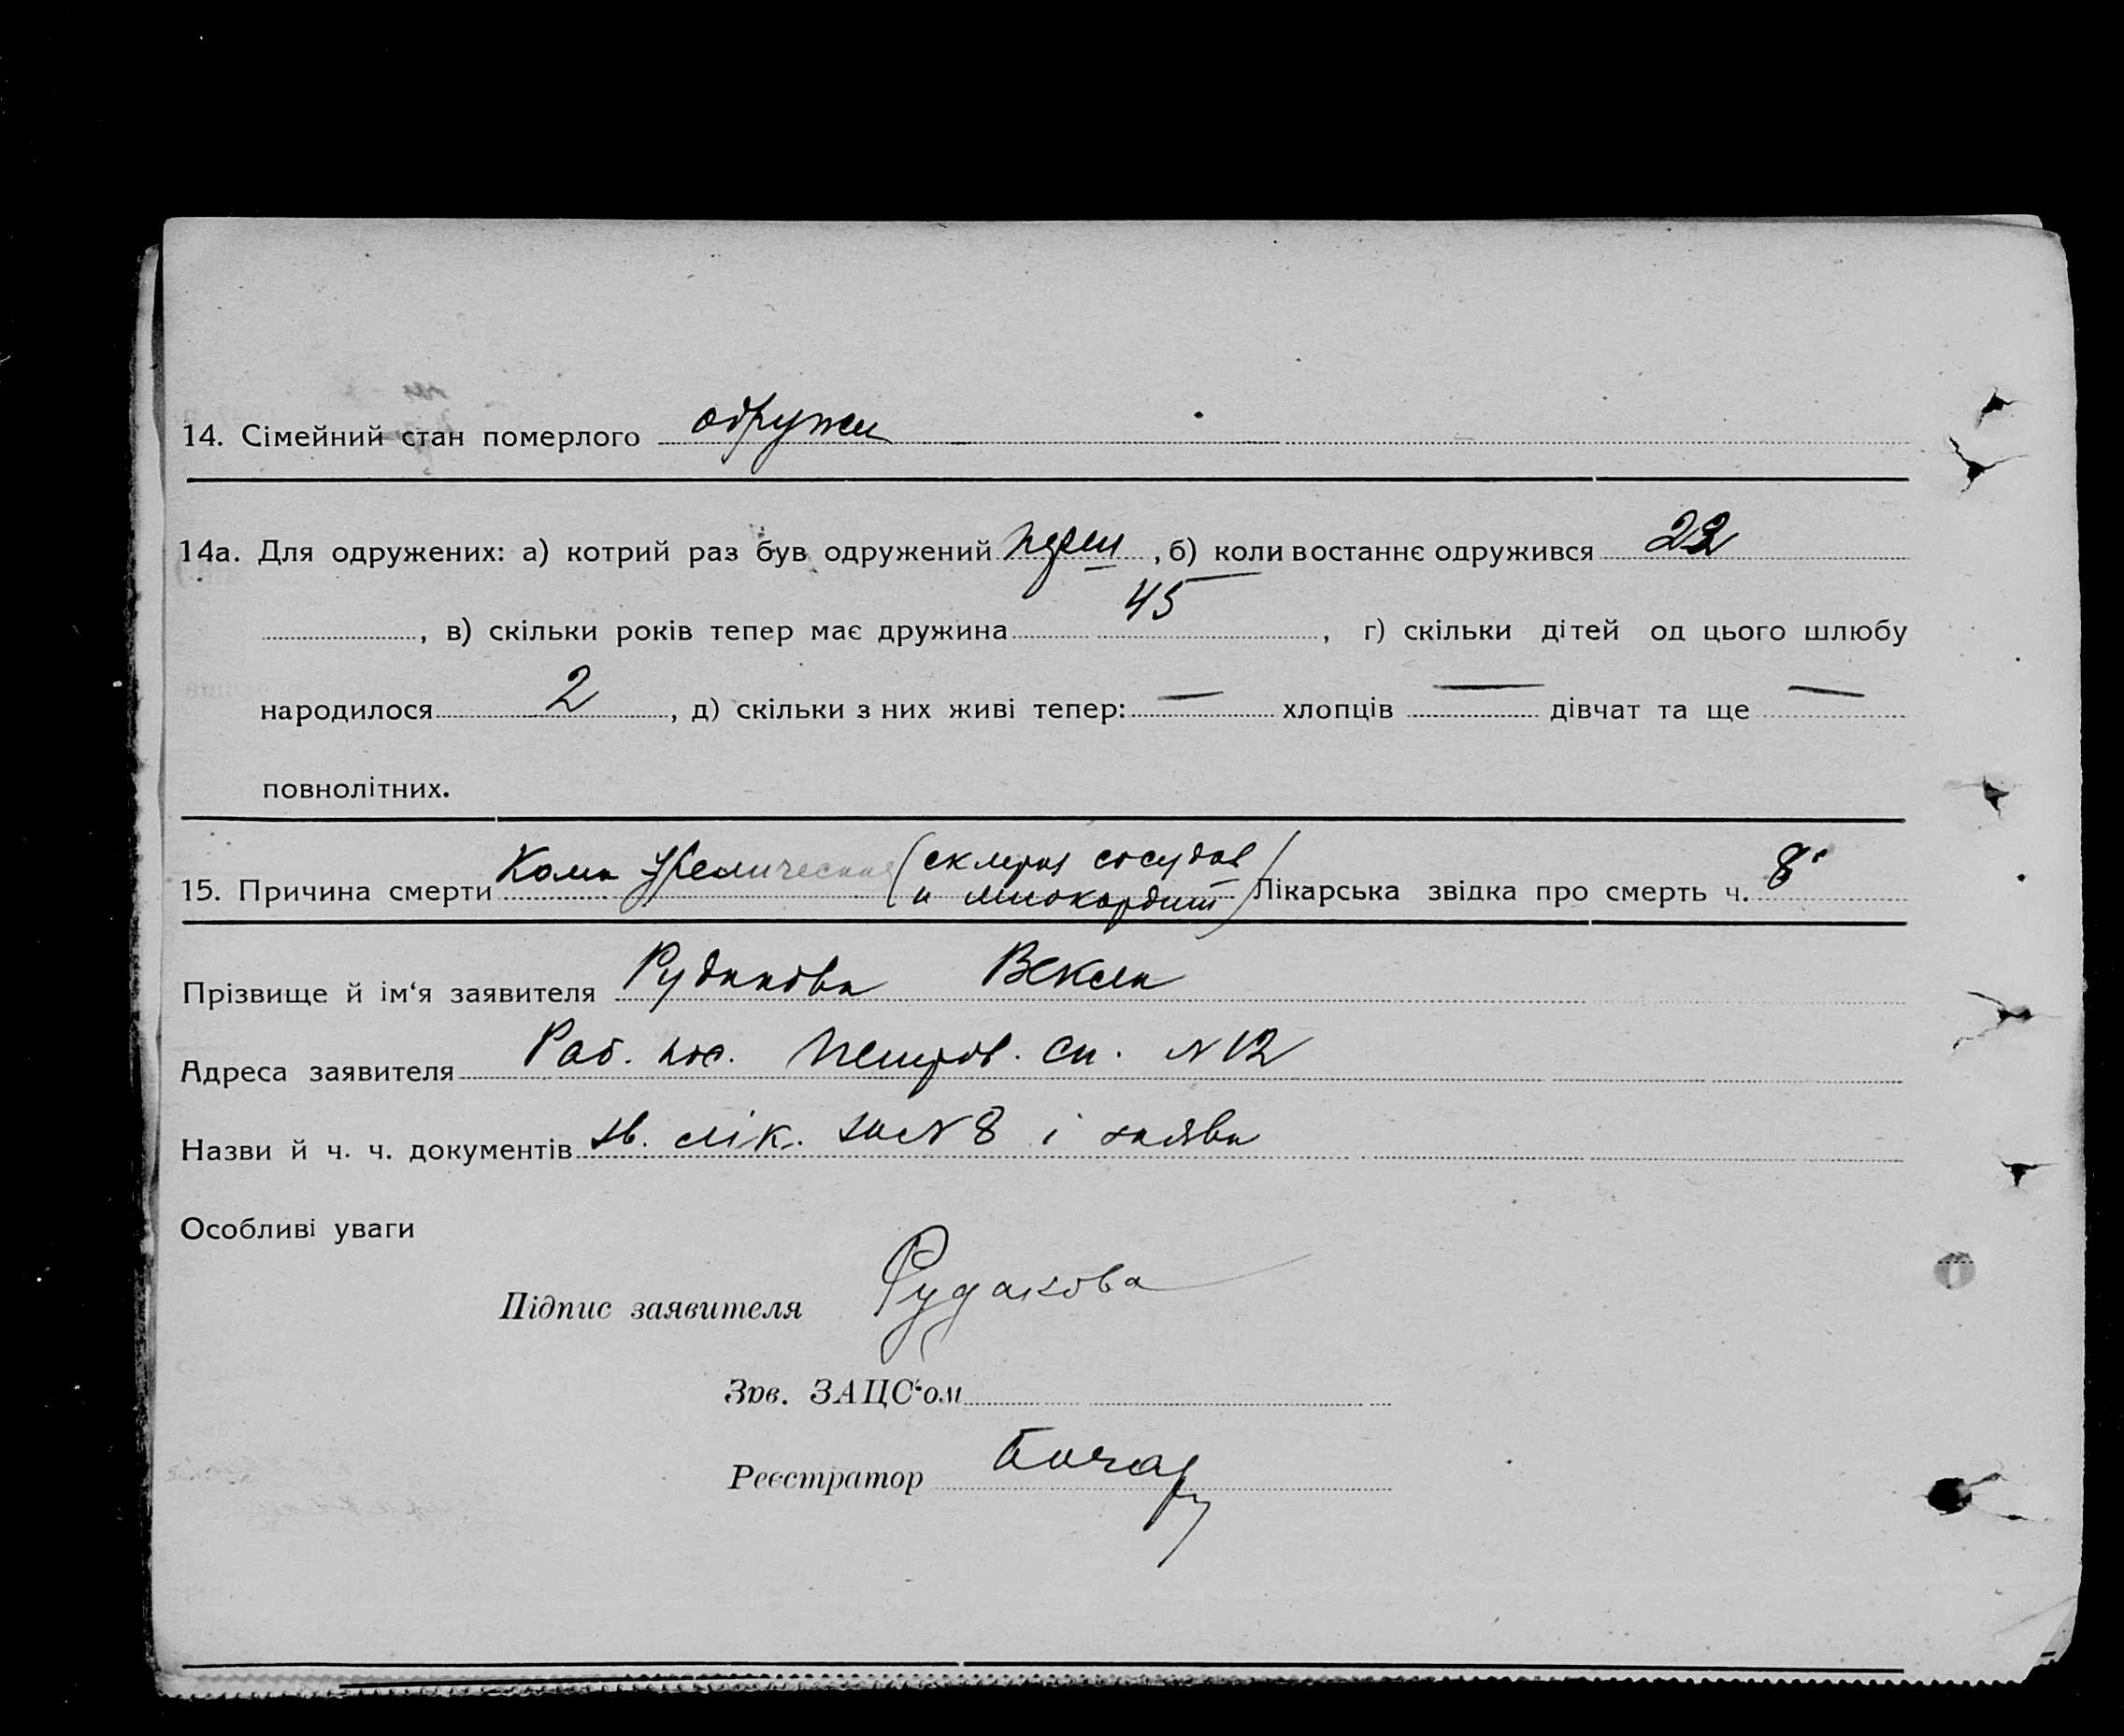 14. Сімейний стан померлого одружен
14а. Для одружених: а) котрий раз був одружений перш, б) коли востаннє одружився 22
, в) скільки років тепер має дружина 45, г) скільки дітей од цього шлюбу
народилося 2, д) скільки з них живі тепер: — хлопців — дівчат та ще —
повнолітних.
15. Причина смерти Кома уремическая (склероз сосудов и миокардит) Лікарська звідка про смерть ч. 8
Прізвище й ім‘я заявителя Рудакова Векла
Адреса заявителя Раб. пос. Петров. сп. N 12
Назви й ч. ч. документів зв. лік. за N 8 і заява
Особливі уваги
Підпис заявителя Рудакова
Зав. ЗАЦС‘ом
Реєстратор Бочар